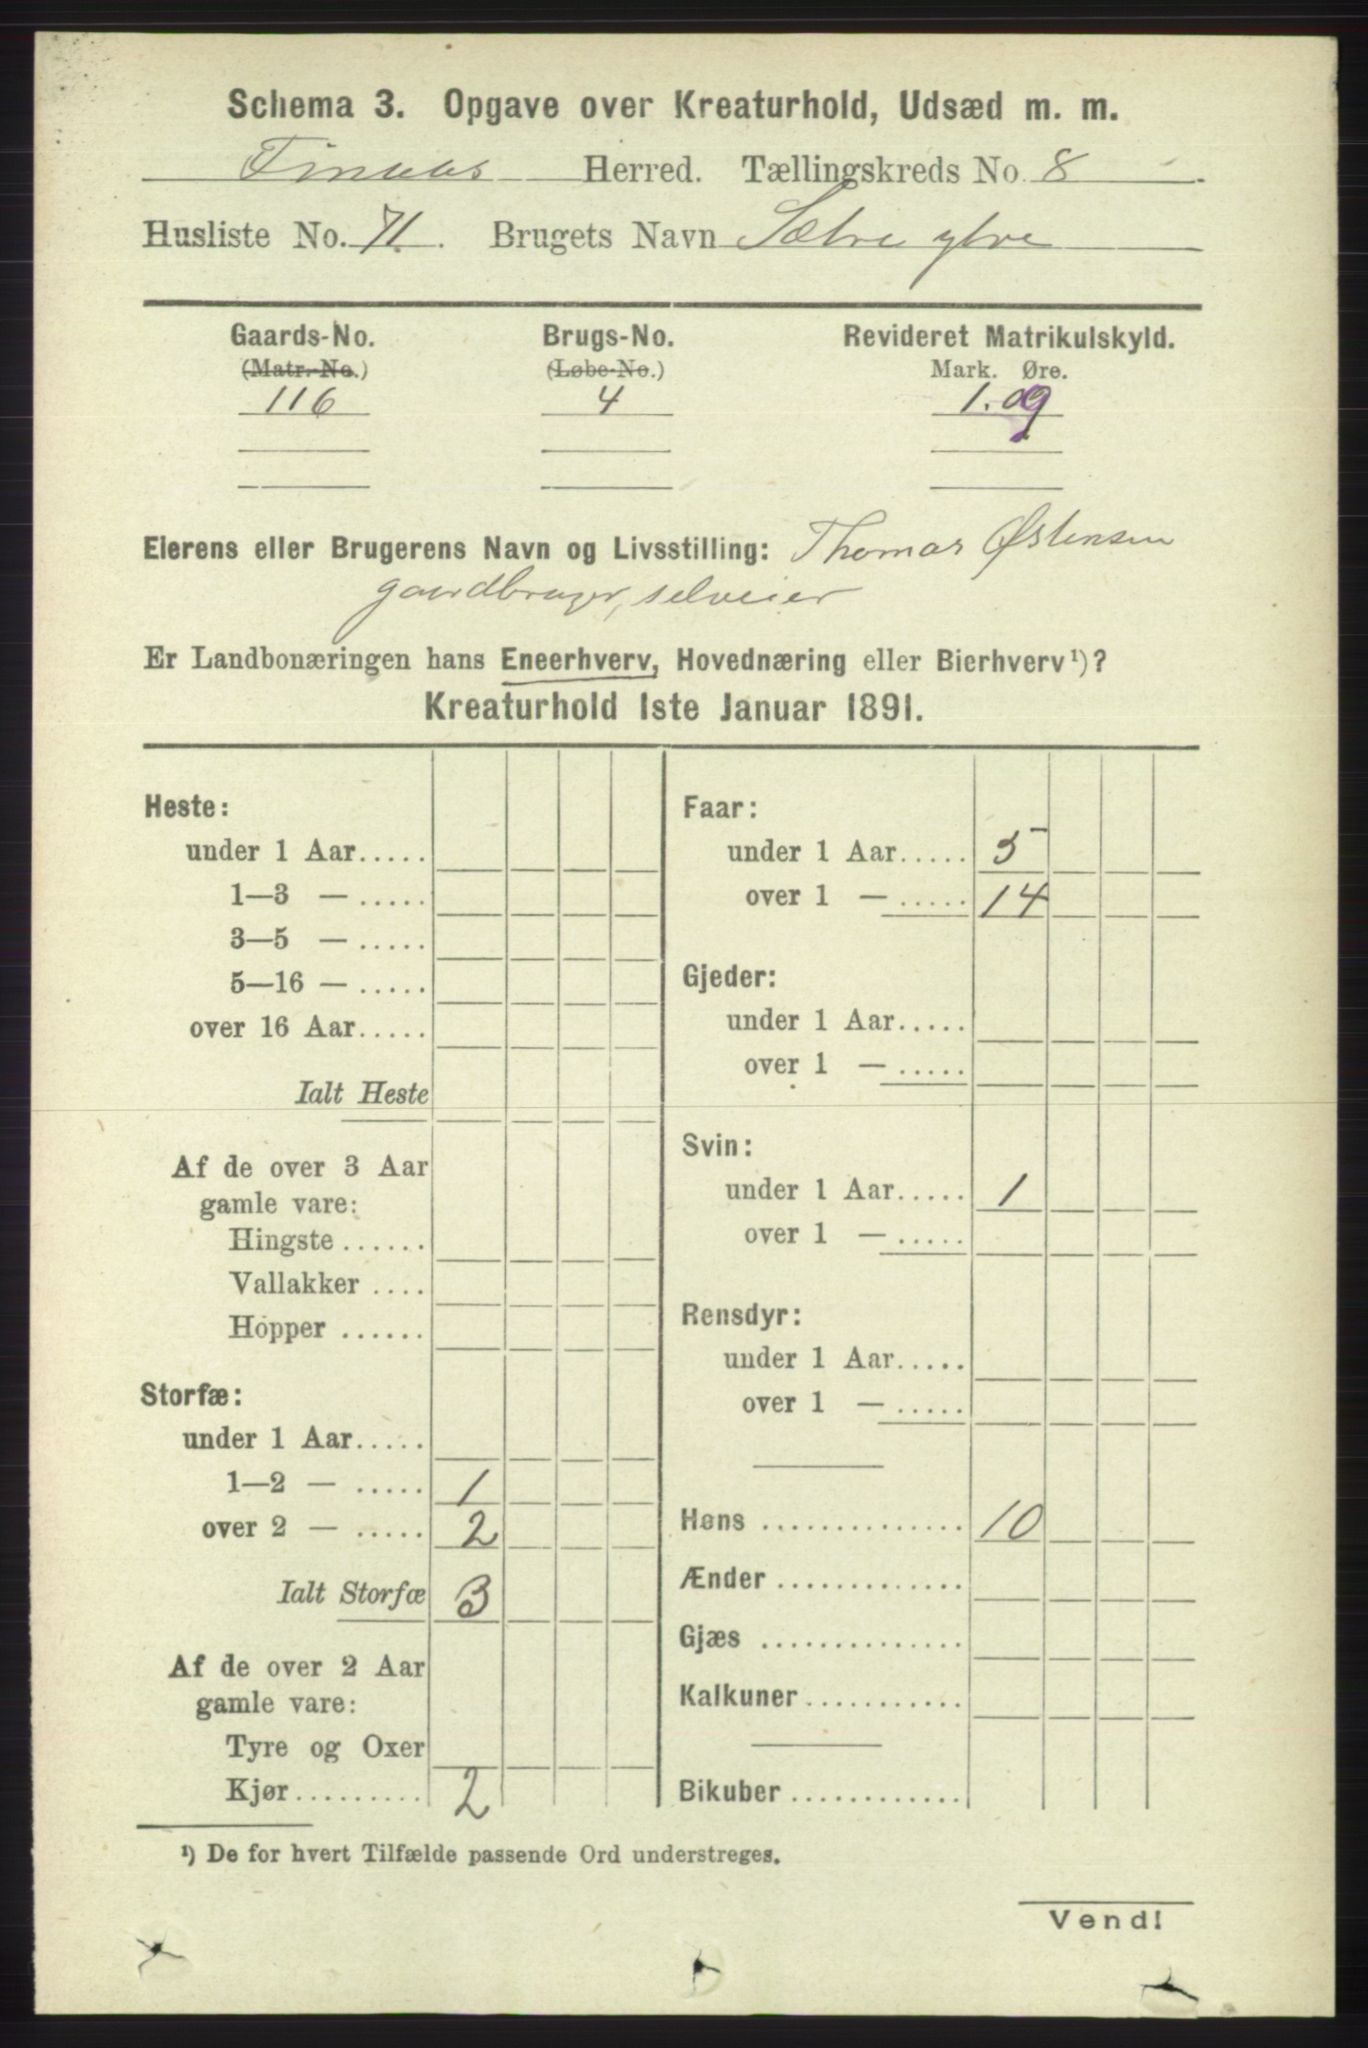 Schema 3. Opgave over Kreaturhold, Udsæd m. m.
Finaas Herred. Tællingskreds No. 8.
Husliste No. 71. Brugets Navn Sætre ytre
Gaards-No. Brugs-No. Revideret Matrikulskyld.
(Matr.-No.) (Løbe-No.) Mark. Øre.
116 4 1.09
Eierens eller Brugerens Navn og Livsstilling: Thomas Østensen
gaardbruger, selveier
Er Landbonæringen hans Eneerhverv, Hovednæring eller Bierhverv ¹)?
Kreaturhold 1ste Januar 1891.
Heste:
under 1 Aar.....
1—3 — .....
3—5 — .....
5—16 — .....
over 16 Aar.....
Ialt Heste
Af de over 3 Aar
gamle vare:
Hingste ......
Vallakker ....
Hopper ......
Storfæ:
under 1 Aar.....
1—2 — ..... 1
over 2 — ..... 2
Ialt Storfæ 3
Af de over 2 Aar
gamle vare:
Tyre og Oxer
Kjør......... 2
Faar:
under 1 Aar..... 5
over 1 — ..... 14
Gjeder:
under 1 Aar.....
over 1 — .....
Svin:
under 1 Aar..... 1
over 1 — .....
Rensdyr:
under 1 Aar.....
over 1 — .....
Høns .............. 10
Ænder .............
Gjæs ..............
Kalkuner ...........
Bikuber ............
¹) De for hvert Tilfælde passende Ord understreges.
Vend!